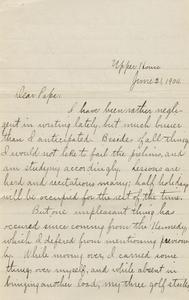 Upper House
June 21, 1900.
Dear Papa:
I have been rather negli-
gent in writing lately, but much busier
than I anticipated. Besides of all things
I would not like to fail the prelims, and
am studying accordingly. Lessons are
hard and recitations many; half holidays
will be occupied for the rest of the time.
But one unpleasant thing has
occured since coming from the Kennedy,
which I defered from mentioning previous-
ly. While moving over I carried some
things over myself, and while absent in
bringing another load, my three golf sticks